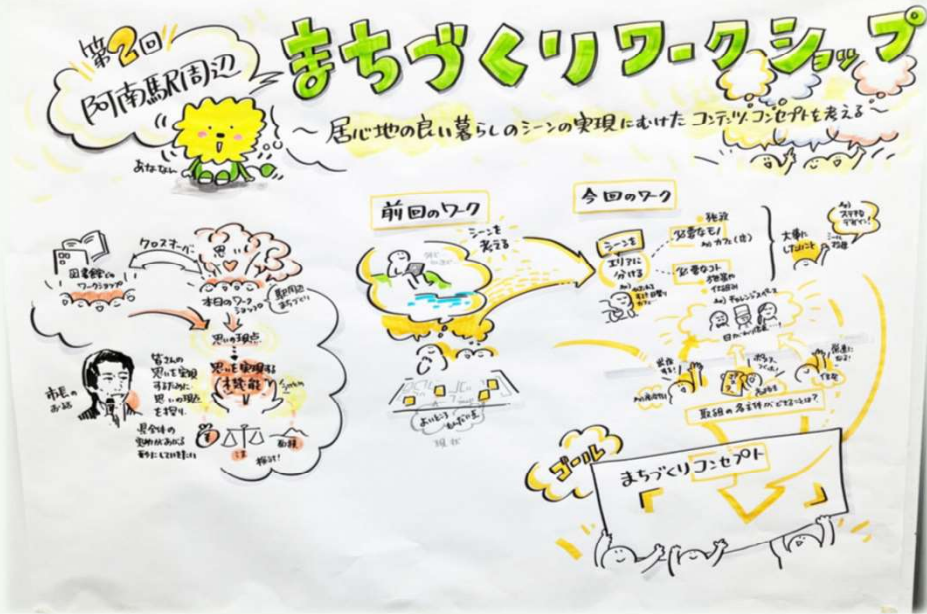 第2回
阿南駅周辺
まちづくりワークショップ
～居心地の良い暮らしのシーンの実現にむけたコンテンツ・コンセプトを考える～
あななん
図書館づくり
ワークショップ
クロスオーバー
思い
本日のワーク
ショップ
駅周辺
まちづくり
思いの視点
思いを実現する
機能
市長の
お話
皆さんの
思いを実現
するために
思いの視点
を探り
検討!
前回のワーク
シーンを
考える
現状
今回のワーク
シーンを
エリアに
分ける
必要なモノ
施設
カフェ
必要なコト
大事に
したいこと
ステキな
デザイン!
チャレンジスペース
取組の各主体ができることは?
ゴール
まちづくりコンセプト